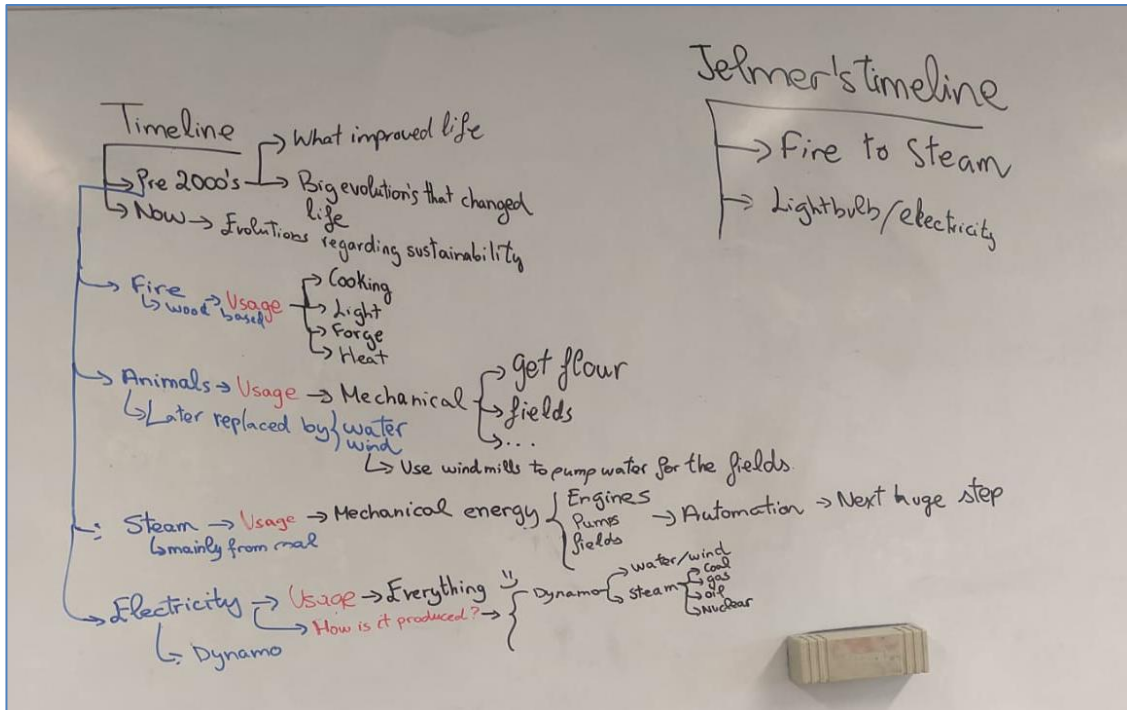 Timeline
→ What improved life
→ Pre 2000's → Big evolution's that changed life
→ Now → Evolutions regarding sustainability
→ Fire → Usage → Cooking
↳ wood based
→ Light
→ Forge
→ Heat
→ Animals → Usage → Mechanical → get flour
→ fields
→ ...
↳ Later replaced by } water
wind
↳ Use windmills to pump water for the fields.
Steam → Usage → Mechanical energy { Engines
Pumps
fields
→ Automation → Next huge step
↳ mainly from coal
→ Electricity → Usage → Everything
→ How is it produced? → { Dynamo → water/wind
→ Steam → coal
→ gas
→ oil
→ Nuclear
↳ Dynamo
Jelmer's timeline
→ Fire to Steam
→ Lightbulb/electricity